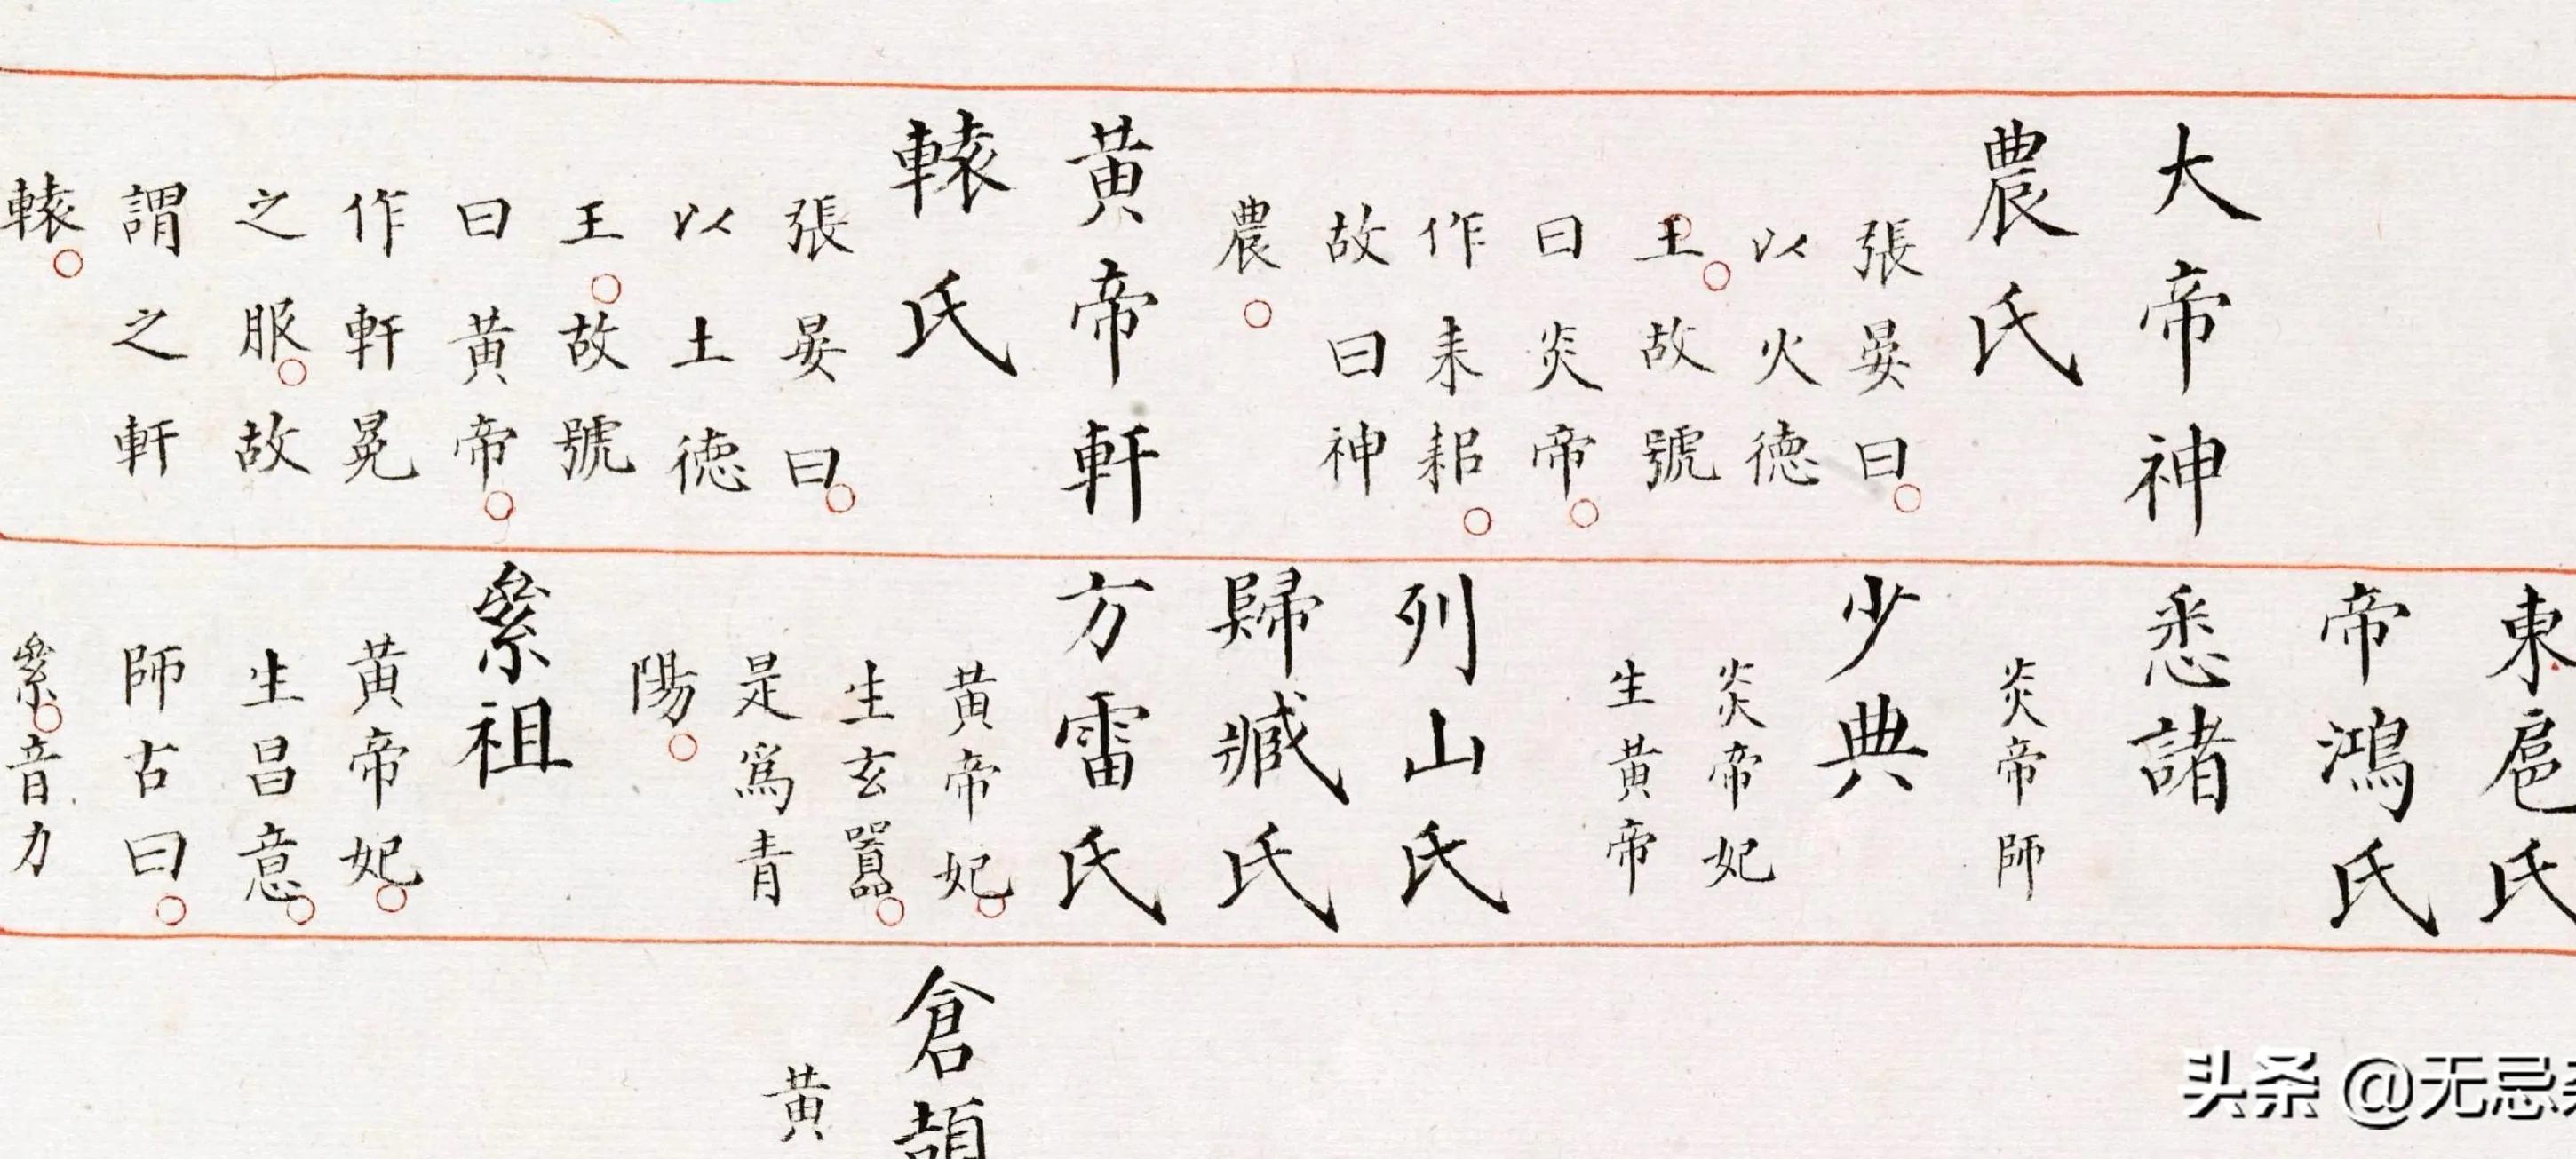 大帝神
農氏
張晏曰
以火德
王故號
曰炎帝
作耒耜
故曰神
農
黄帝軒
轅氏
張晏曰
以土德
王故號
曰黄帝
作軒冕
之服故
謂之軒
轅
東扈氏
帝鴻氏
悉諸
炎帝師
少典
炎帝妃
生黄帝
列山氏
歸臧氏
方雷氏
黄帝妃
生玄囂
是為青
陽
絫祖
黄帝妃
生昌意
師古曰
絫音力
倉頡
黄
头条 @无忌